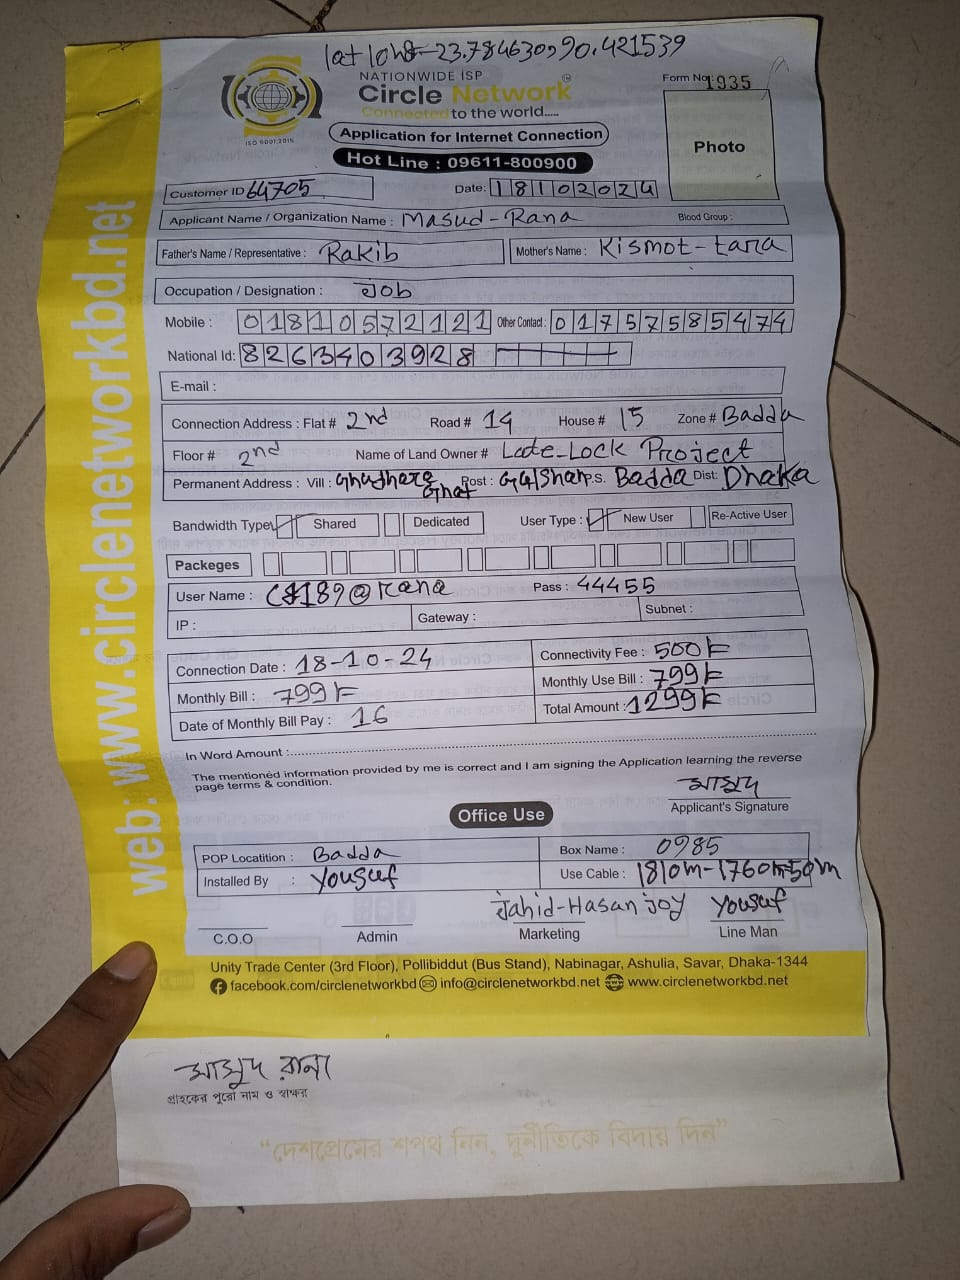 lat long-23.784630,90.421539
NATIONWIDE ISP
Circle Network
Connected to the world.....
ISO 9001:2015
Form No: 1935
Photo
Application for Internet Connection
Hot Line : 09611-800900
Customer ID 64705
Date: 18102024
Applicant Name / Organization Name : Masud-Rana Blood Group :
Father's Name / Representative : Rakib Mother's Name : Kismot-tara
Occupation / Designation : Job
Mobile : 01810572121 Other Contact : 01757585474
National Id: 8263403928
E-mail :
Connection Address : Flat # 2nd Road # 14 House # 15 Zone # Badda
Floor # 2nd Name of Land Owner # Late-Lock Project
Permanent Address : Vill : Ghat Post : Gulshan P.S. Badda Dist: Dhaka
Bandwidth Type Shared Dedicated User Type : New User Re-Active User
Packeges
User Name : 189@Rana Pass : 44455
IP : Gateway : Subnet :
Connection Date : 18-10-24 Connectivity Fee : 500
Monthly Bill : 799 Monthly Use Bill : 799
Date of Monthly Bill Pay : 16 Total Amount : 1299
In Word Amount :
The mentioned information provided by me is correct and I am signing the Application learning the reverse
page terms & condition.
মাসুদ
Applicant's Signature
Office Use
POP Locatition : Badda Box Name : 0985
Installed By : Yousuf Use Cable : 1810m-1760m=50m
Jahid-Hasan joy Yousuf
C.O.O Admin Marketing Line Man
Unity Trade Center (3rd Floor), Pollibiddut (Bus Stand), Nabinagar, Ashulia, Savar, Dhaka-1344
facebook.com/circlenetworkbd info@circlenetworkbd.net www.circlenetworkbd.net
web: www.circlenetworkbd.net
মাসুদ রানা
গ্রাহকের পুরো নাম ও স্বাক্ষর
“দেশপ্রেমের শপথ নিন, দুর্নীতিকে বিদায় দিন”